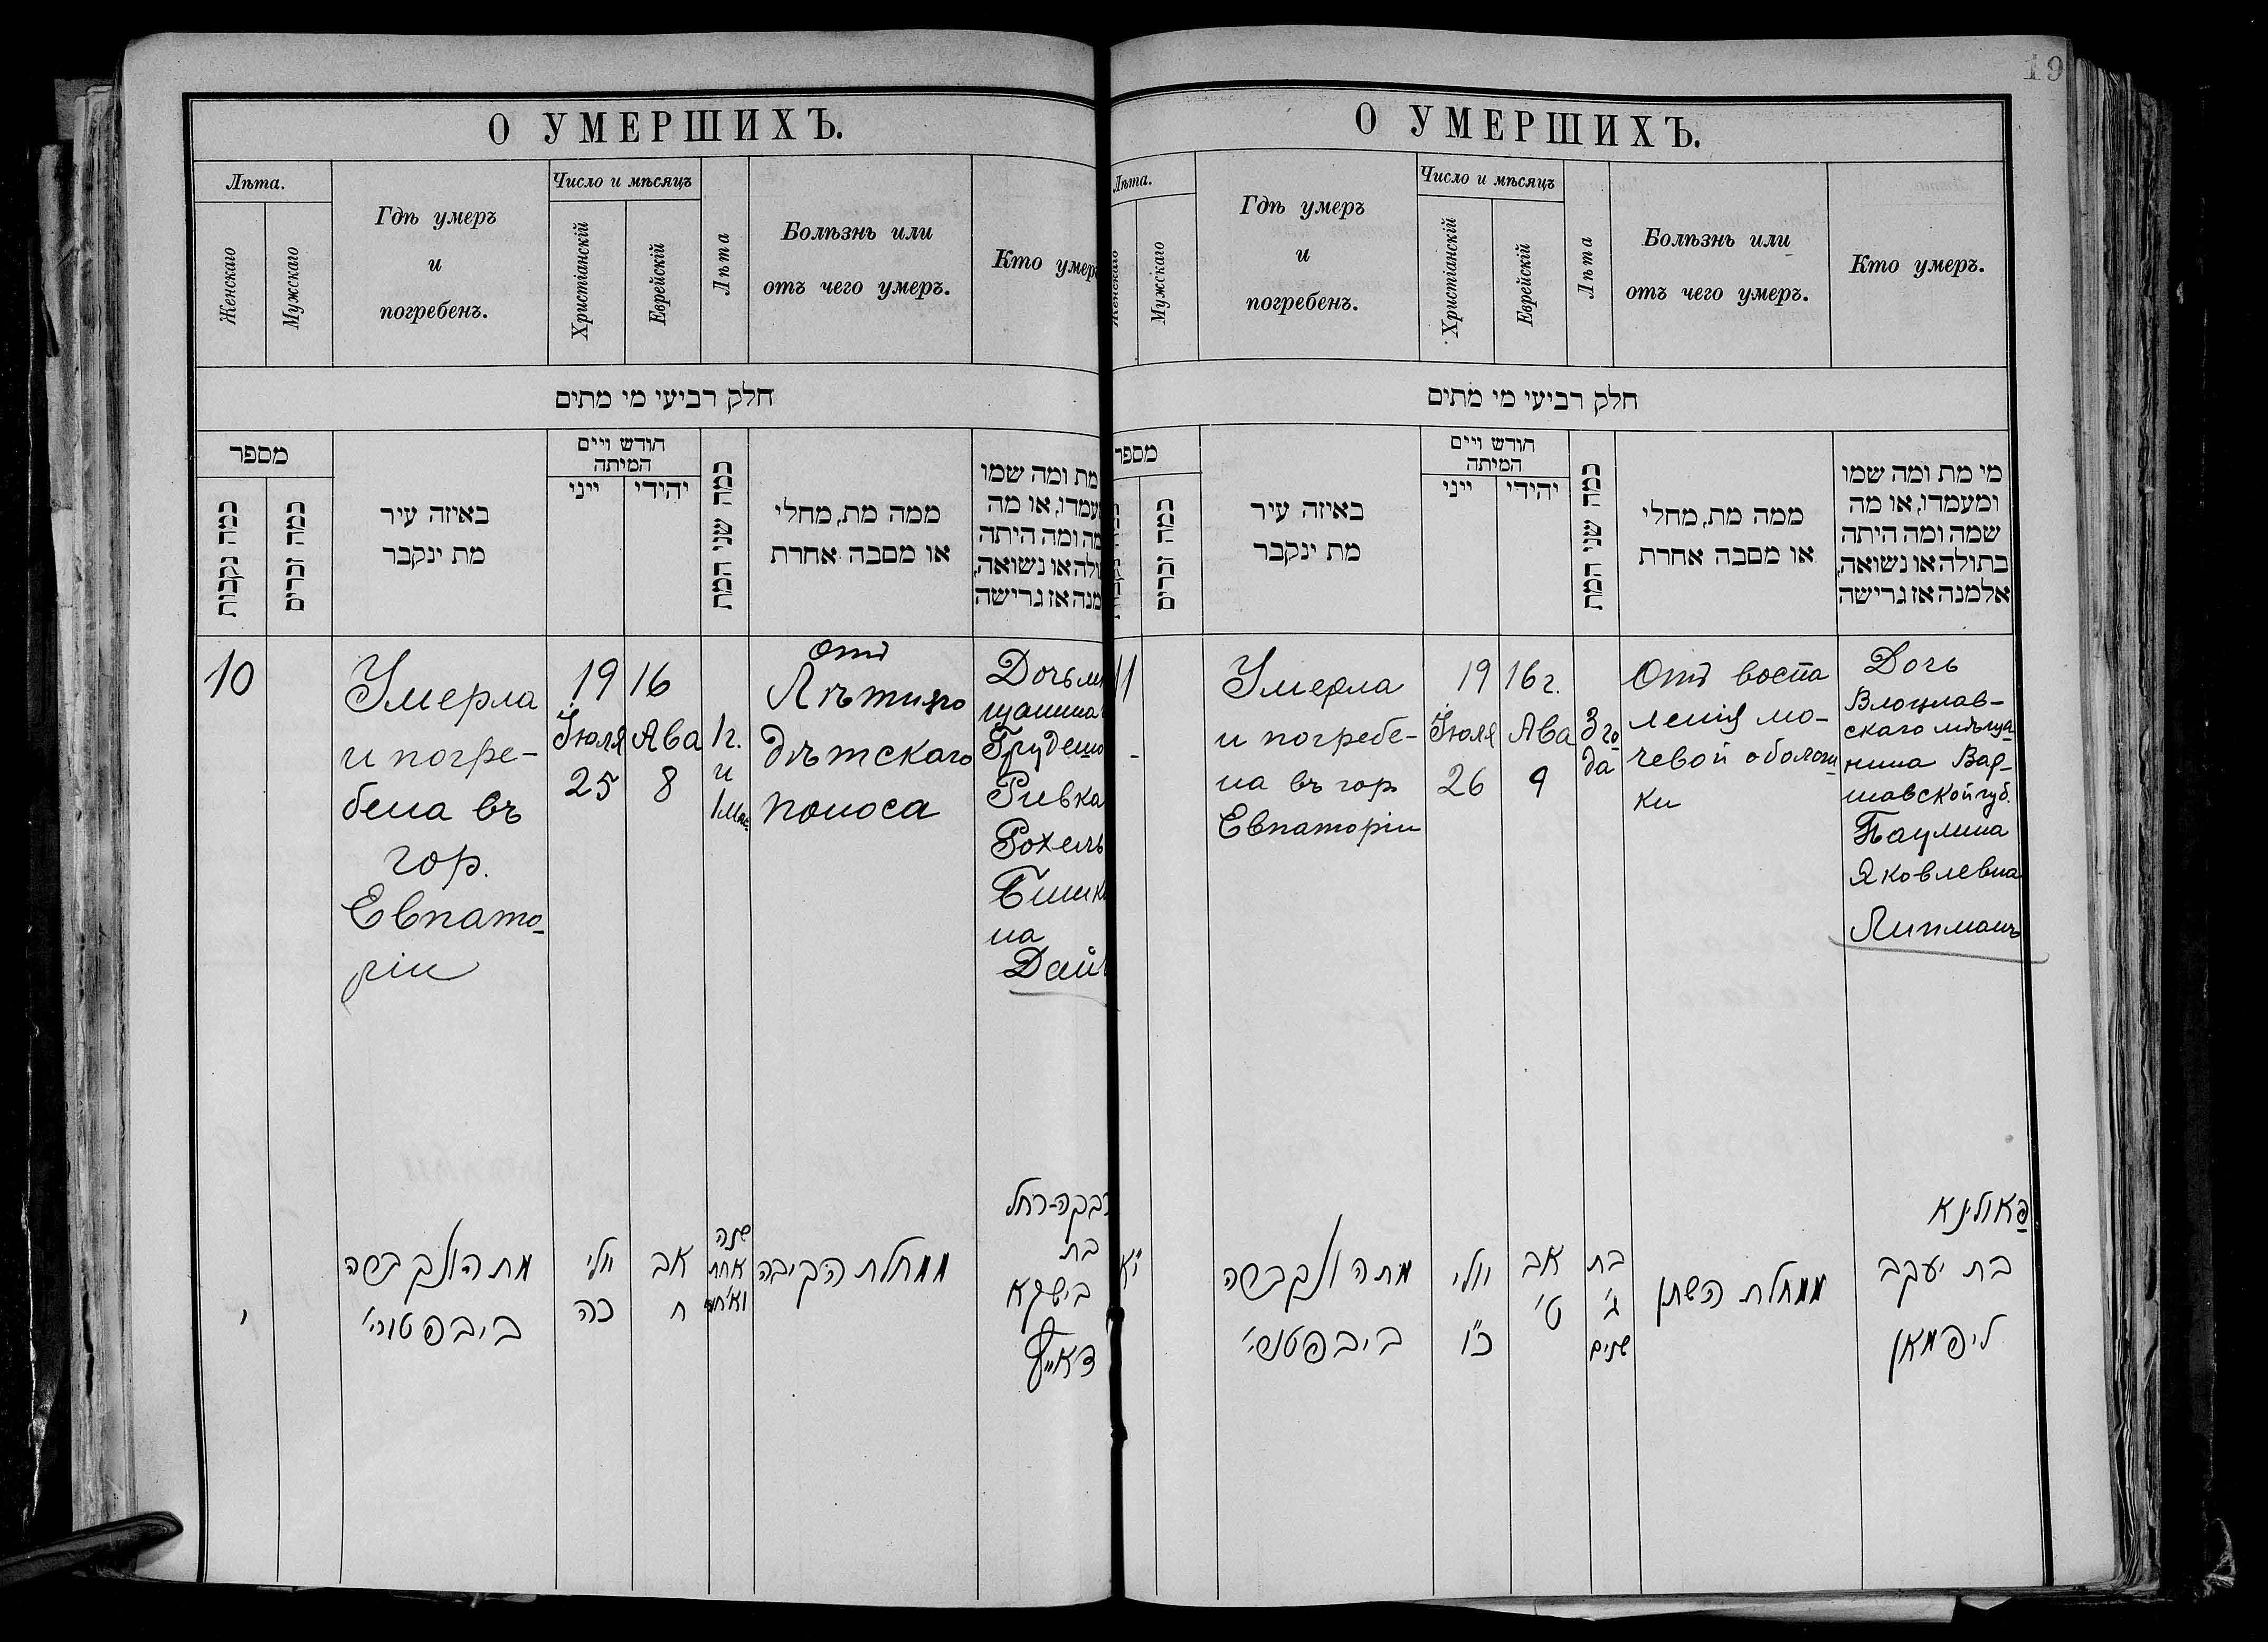 19
О УМЕРШИХЪ.
Лѣта.
Женскаго
Мужскаго
Гдѣ умеръ
и
погребенъ.
Число и мѣсяцъ
Христіанскій
Еврейскій
Лѣта
Болѣзнь или
отъ чего умеръ.
Кто умеръ
חלק רביעי מי מתים
מספר
כמה נקבות
כמה זכרים
באיזה עיר
מת ינקבר
חודש ויים
המיתה
ייני
יהידי
כמה שני המת
ממה מת, מחלי
או מסבה אחרת
מת ומה שמו
ועמדו, או מה
מה ומה היתה
ולה או נשואה,
מנה אז גרישה
10
Умерла
и погре-
бена въ
гор.
Евпато-
ріи
19 16
Іюля Ава
25 8
1 г.
и
1 мѣс.
Отъ
Лѣтняго
дѣтскаго
поноса
Дочь мѣ
щанина
Ривка
Рохель
на
Дай
מתה ונקברה
יולי
כה
אב
ח
שנה
אחת
ממחלת הקיבה
רבקה-רחל
בת
О УМЕРШИХЪ.
Лѣта.
Женскаго
Мужскаго
Гдѣ умеръ
и
погребенъ.
Число и мѣсяцъ
Христіанскій
Еврейскій
Лѣта
Болѣзнь или
отъ чего умеръ.
Кто умеръ.
חלק רביעי מי מתים
מספר
כמה זכרים
באיזה עיר
מת ינקבר
חודש ויים
המיתה
ייני
יהידי
כמה שני המת
ממה מת, מחלי
או מסבה אחרת
מי מת ומה שמו
ומעמדו, או מה
שמה ומה היתה
בתולה או נשואה,
אלמנה אז גרישה
11
Умерла
и погребе-
на въ гор.
Евпаторіи
19 16 г.
Іюля Ава
26 9
3 го-
да
Отъ воспа
ленія мо-
чевой оболоч-
ки
Дочь
Влоцлав-
скаго мѣща-
нина Вар-
шавской губ.
Паулина
Яковлевна
Липманъ
י"א
מתה ונקברה
יולי
כ"ו
אב
ט'
בת
ג'
שנים
ממחלת השתן
פאולינא
בת יעקב
ליפמאן